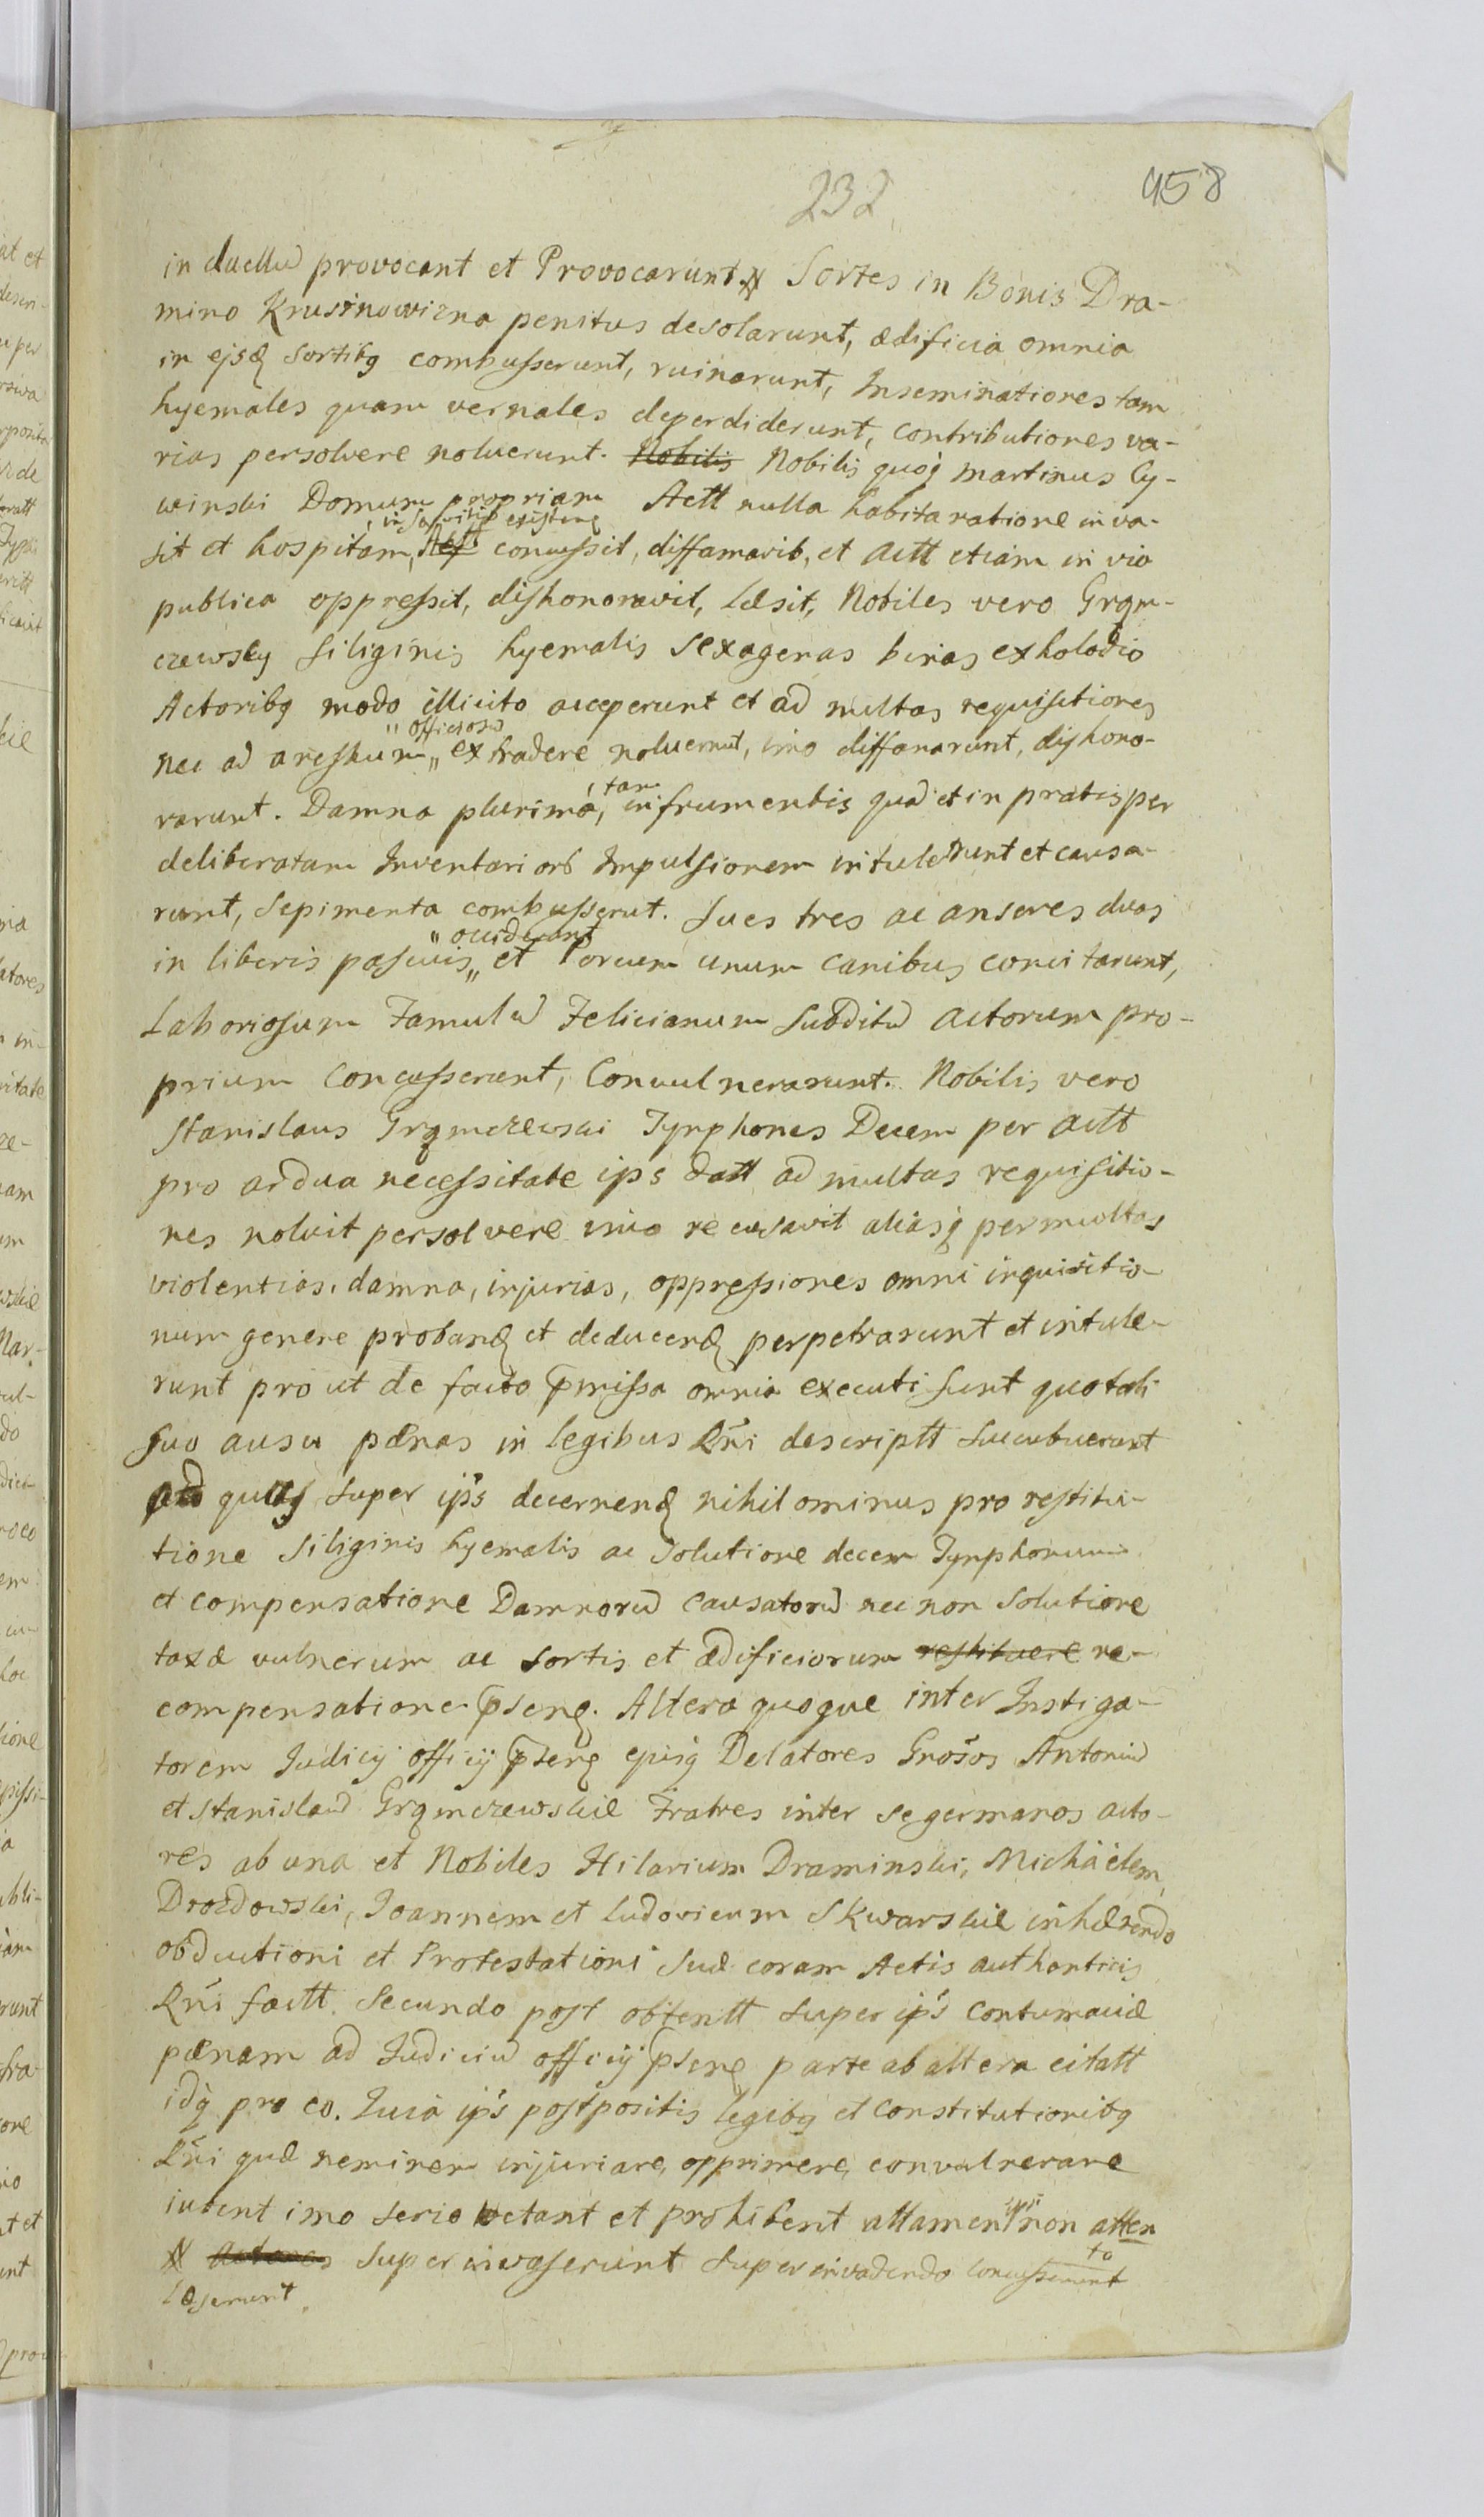 232
458
in duellũ provocant et Provocarunt # Sortes in Bonis Dra-
mino Krusinowizna penitus desolarunt, ædificia omnia
in ejsđ Sortibq combusserunt, ruinarunt, Inseminationes tam
hyemales quam vernales deperdiderunt, contributiones va-
rias persolvere noluerunt. Nobilis Nobilis quoq Martinus Cy-
winski Domum propriam Actt nulla habita ratione inva-
in servitio existenq
sit et hospitam, concussit, diffamavit, et actt etiam in via
publica oppressit, dishonoravit, læsit, Nobiles vero Grqm-
czewscy siliginis hyemalis sexagenas binas ex holodio
Actoribq modo illicito acceperunt et ad multas requisitiones
officiosũ
nec ad arestum extradere noluerunt, imo diffamarunt, dishono-
tam
rarunt. Damna plurima, in frumentis quã et in pratis per
deliberatam Inventariorũ Impulsionem intulerunt et causa-
runt, sepimenta combusserut. Sues tres ac anseres duas
occiderunt
in liberis pascuis et Porcum unum canibus concitarunt,
Laboriosum Famulũ Felicianum Subditũ actorum pro-
prium Concusserunt, Convulnerarunt. Nobilis vero
Stanislaus Grqmczewski Tynphones Decem per actt
pro ardua necessitate ips datt ad multas requisitio-
nes noluit persolvere imo recusavit aliasq permultas
violentias, damna, injurias, oppressiones omni inquisitio-
num genere probanđ et deducenđ perpetrarunt et intule-
runt prout de facto p̄missa omnia executi sunt quo tali
suo ausu pænas in legibus Rñi descriptt succubuerunt
super ips decernenđ nihilominus pro restitu-
tione Siliginis hyemalis ac Solutione decem Tynphonum
et compensatione Damnorũ Causatorũ nec non Solutione
taxæ vulnerum ac sortis et ædificiorum restituere re-
compensatione p̄senq. Altera quoque inter Instiga-
torem Iudicij officij p̄senq ejusq Delatores Grosos Antoniũ
et Stanislaũ Grqmczewskie Fratres inter se germanos acto-
res ab una et Nobiles Hilarium Draminski, Michaëlem
Drozdowski, Joannem et Ludovicum Skwarskie inhærendo
obductioni et Protestationi suæ coram Actis authenticis
Rñi factt. Secundo post obtentt super ips contumaciæ
pænam ad Iudiciũ officij p̄senq parte ab altera citatt
idq pro eo. Quia ips postpositis legibq et Constitutionibq
Rñi quæ neminem injuriare, opprimere, convulnerare
iubent imo serio vetant et prohibent attamen ipsi non atten
to
# Actores Superinvaserunt Superinvadendo concusserunt
læserunt.